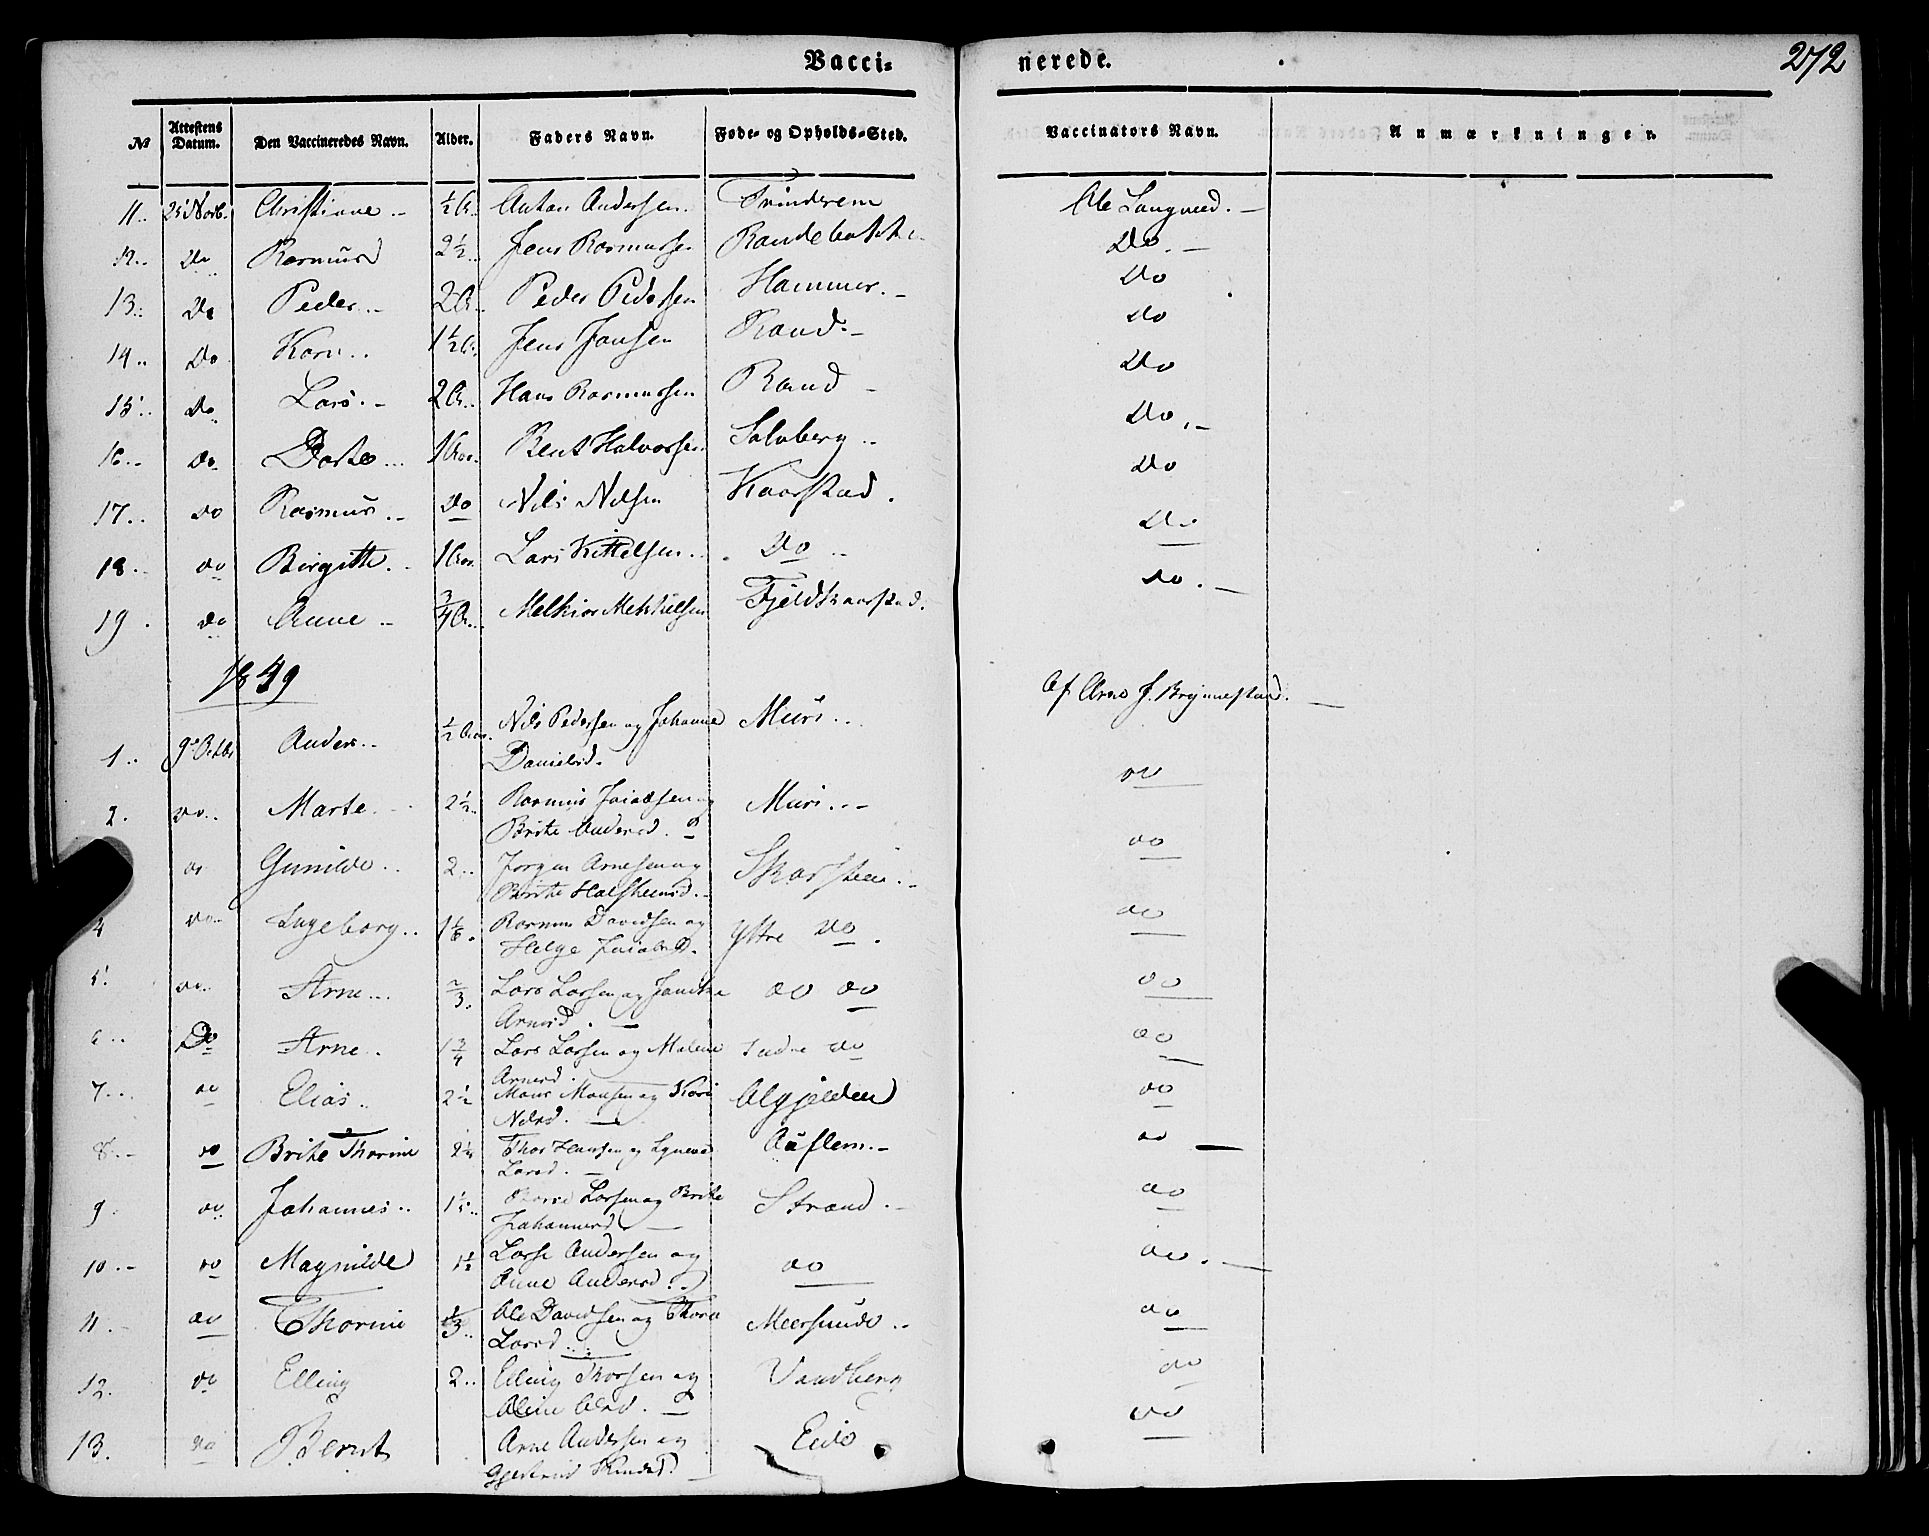 Vacci- nerede. 272
№ Attestens Datum. Den Vaccineredes Navn. Alder. Faders Navn. Føde- og Opholds-Sted. Vaccinators Navn. Anmærkninger.
11.. 25 Novb. Christiane.- ½ A. Anton Andersen. Ole Langved.-
12.. Do Rasmus 2½.. Jens Rasmussen Randebakke Do.-
13.. Do Peder.- 2 A. Peder Pedersen Hammer.- Do
14.. Do Karn.. 1½ A. Jens Jansen Rand.- Do
15.. Do Lars.- 2 A.. Hans Rasmussen Rand - Do
16.- Do Dorte... 1 Aar. Bent Halvorsen Solvberg.. Do.-
17.. Do Rasmus.- Do Nils Nilsen Kaarstad. Do
18.- do Birgitte.. 1 Aar. Lars Kittelsen.. Do.. Do
19. do Anne.- ¾ A.. Melkior Mekkelsen Fjeldkaarstad. Do.-
1849
1.. 9de Octbr Anders.. ½ Aar. Nils Pedersen og Johanne Muri... Af Arne J. Brynnestad.-
Danielsd.
2. do.. Marte.- 2½.. Rasmus Jacobsen og Muri..- do
Brite Andersd.
do Gunilde.. 2.. Jørgen Arnesen og Skarsteen.- do
Brite
4 do.. Ingeborg.. 1⅙. Rasmus Davidsen og Ytre do. do
Helge Jacobsd.
5. do.. Arne... ⅔. Lars Larsen og do do do
Arnesd.-
6.. Do Arne.. 1¾ Lars Larsen og Malene Indre do do
Arnesd.
7... do Elias.. 2½ Mons Monsen og Kari do
Nilsd.-
8.- do Brite Thorine 2¼ Thor Hansen og Auflem.- do -
Larsd.-
9. do Johannes.. Larsen og Brite Strand.- do
Johannesd.-
10.- do Magnilde 1½ Lasse Andersen og do do.-
Anne Andersd.
11.- do Thorine ⅓.. Ole Davidsen og Thore Meersunde.. do
Larsd..
12. do Elling 2.. Elling Thorsen og Vandberg do
Olsd.-
13. do Bernt Arne Andersen og Eide do
Knudsd.-